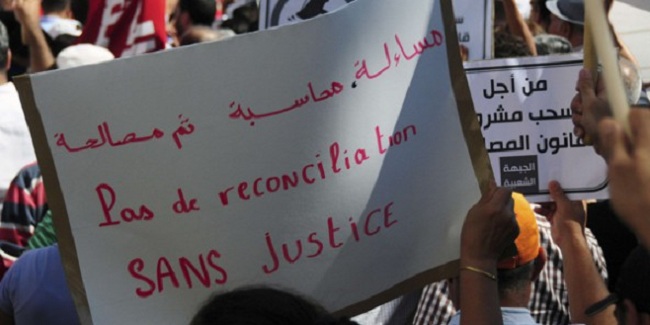 مساءلة. محاسبة ثم مصالحة
Pas de reconciliation
SANS JUSTICE
من أجل
سحب مشرو
قانون المصا
الجبهة
الشعبية